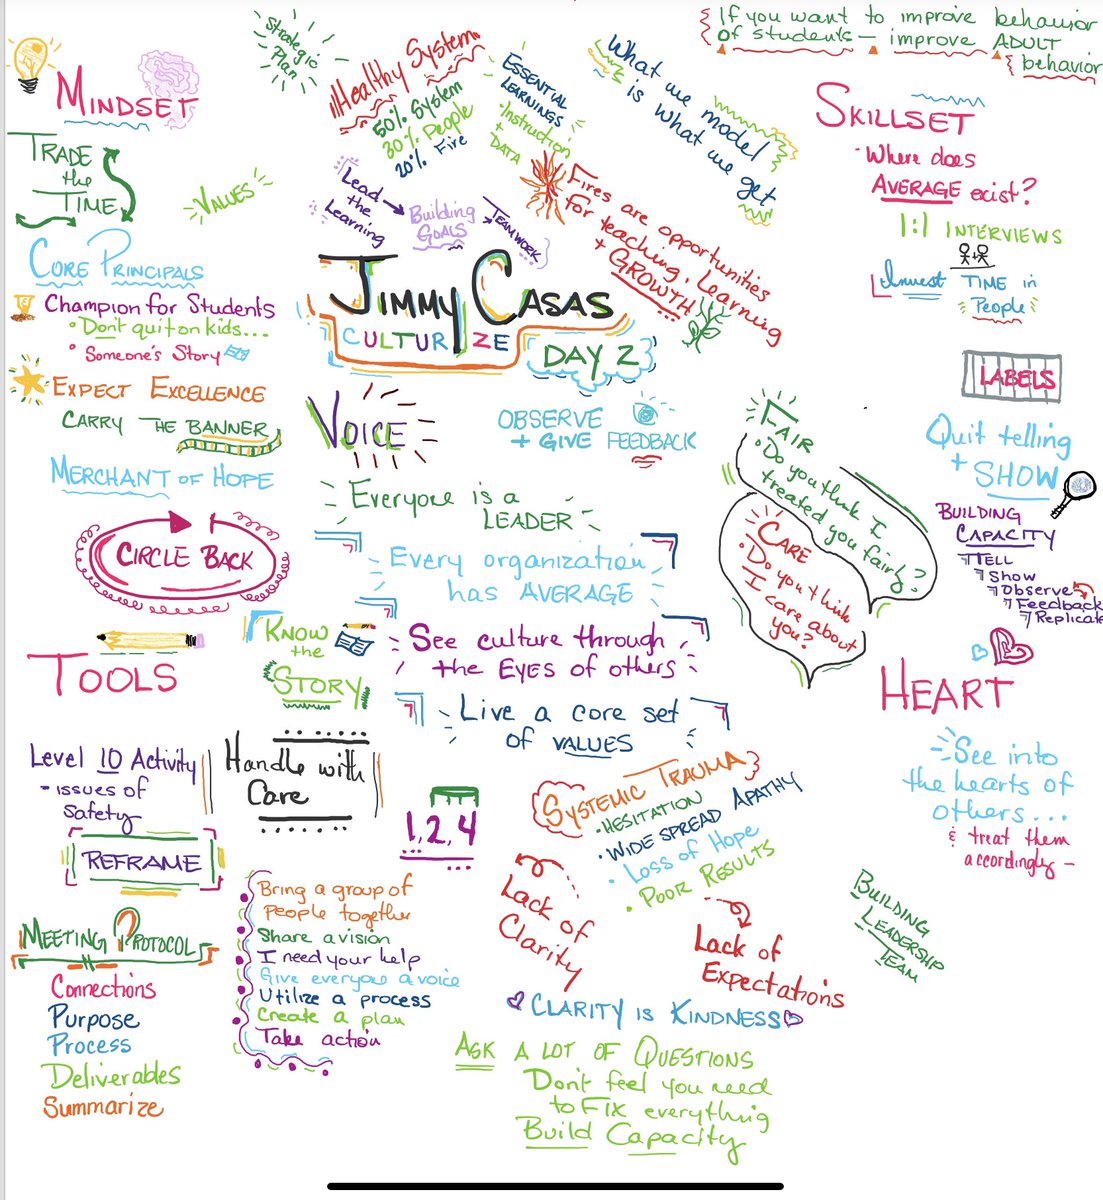 Strategic
Plan
Healthy System
50% System
30% People
20% Fire
ESSENTIAL
LEARNINGS
Instruction
+
DATA
What we model
is what we get
If you want to improve behavior
of students — improve ADULT
behavior
MINDSET
TRADE
the
TIME
VALUES
Lead
the
Learning
Building
GOALS
TEAMWORK
Fires are opportunities
for teaching, learning
+ GROWTH
SKILLSET
• Where does
AVERAGE exist?
1:1 INTERVIEWS
Invest TIME in
People
CORE PRINCIPALS
Champion for Students
• Don't quit on kids...
• Someone's Story
EXPECT EXCELLENCE
CARRY THE BANNER
MERCHANT OF HOPE
CIRCLE BACK
JIMMY CASAS
CULTURIZE
DAY 2
VOICE
OBSERVE
+ GIVE FEEDBACK
Everyone is a
LEADER
Every organization
has AVERAGE
See culture through
the EYES of others
Live a core set
of VALUES
FAIR
• Do you think I
treated you fairly?
CARE
• Do you think
I care about
you?
LABELS
Quit telling
+ SHOW
BUILDING
CAPACITY
TELL
Show
Observe
Feedback
Replicate
TOOLS
KNOW
the
STORY
Level 10 Activity
- issues of
safety
Handle with
Care
REFRAME
1, 2, 4
MEETING PROTOCOL
Connections
Purpose
Process
Deliverables
Summarize
Bring a group of
people together
Share a vision
I need your help
Give everyone a voice
Utilize a process
Create a plan
Take action
SYSTEMIC TRAUMA
• HESITATION
• WIDE SPREAD APATHY
• LOSS of HOPE
• POOR RESULTS
Lack of
Clarity
Lack of
Expectations
CLARITY IS KINDNESS
ASK A LOT OF QUESTIONS
Don't feel you need
to FIX everything
Build Capacity
HEART
See into
the hearts of
others...
& treat them
accordingly -
BUILDING
LEADERSHIP
TEAM